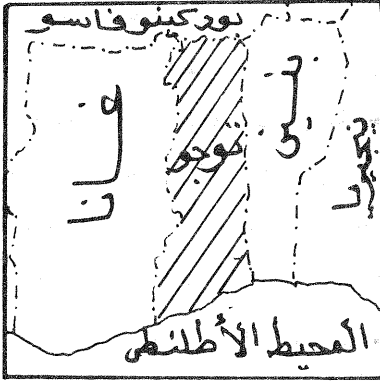 بوركينو فاسو
غانا
توجو
بنين
نيجيريا
المحيط الأطلنطى